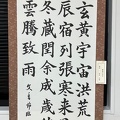 玄黄宇宙洪荒
辰宿列張寒来
冬蔵閏余成歳
雲騰致雨